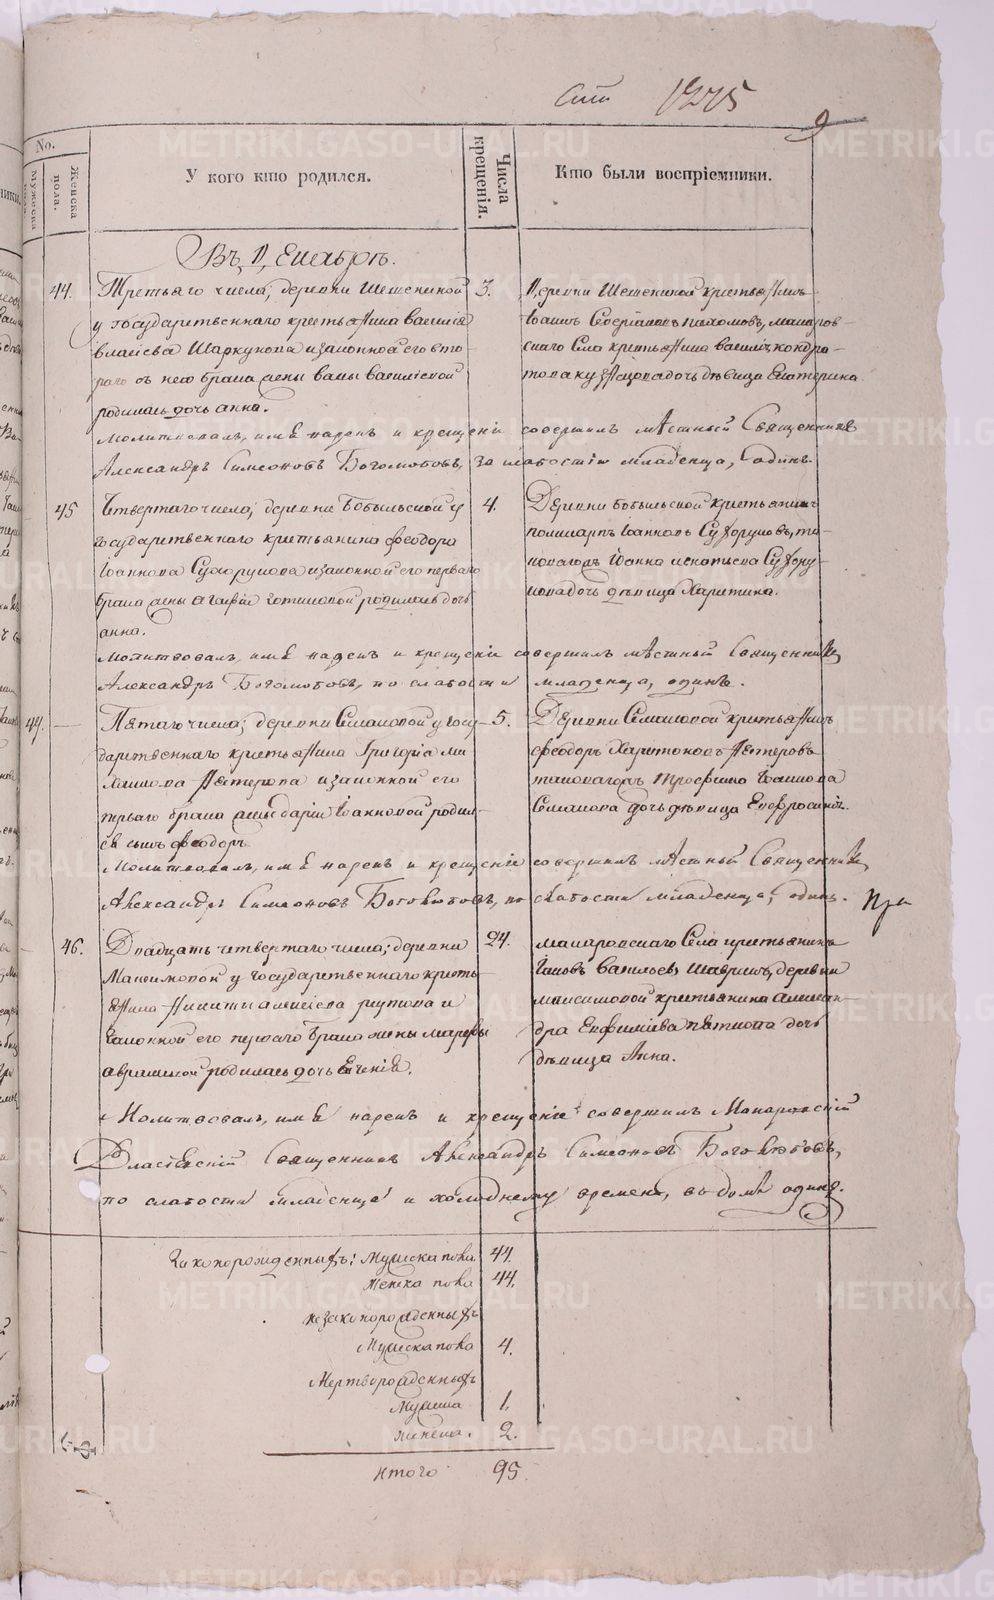 1275
9
No.
Мужеска пола.
Женска пола.
У кого кто родился.
Числа крещенія.
Кто были воспріемники.
Въ Декабрѣ.
44.
Третьяго числа, деревни
у государственнаго крестьянина Василія
Шаркунова и законной его вто-
раго съ нею брака жены
родилась дочь Анна.
3.
Деревни крестьянинъ
Іоаннъ Пахомовъ, Макаров-
скаго Села крестьянина
дочь дѣвица Екатерина
Молитвовалъ, имя нарекъ и крещеніе совершилъ мѣстный Священникъ
Александръ Симеоновъ Боголюбовъ, за слабостію младенца, одинъ.
45
Четвертаго числа, деревни Бобыльской у
государственнаго крестьянина Феодора
Іоаннова Сухорукова и законной его перваго
брака жены Агафіи родилась дочь
Анна.
4.
Деревни Бобыльской крестьянинъ
Поликарпъ Іоанновъ Сухоруковъ, та-
коваго же Іоанна Сухору-
кова дочь дѣвица Харитина.
Молитвовалъ, имя нарекъ и крещеніе совершилъ мѣстный Священникъ
Александръ Боголюбовъ, по слабости младенца, одинъ.
44.
Пятаго числа, деревни Семановой у госу-
дарственнаго крестьянина Григорія
и законной его
перваго брака жены Даріи Іоанновой родил-
ся сынъ Феодоръ.
5.
Деревни Семановой крестьянинъ
Феодоръ Харитоновъ
таковаго же Трофима Іоаннова
Семанова дочь дѣвица Евфросинія.
Молитвовалъ, имя нарекъ и крещеніе совершилъ мѣстный Священникъ
Александръ Симеоновъ Боголюбовъ, по слабости младенца, одинъ.
46.
Двадцать четвертаго числа, деревни
Максимовой у государственнаго кресть-
янина Никиты Алексіева и
законной его перваго брака жены Марѳы
родилась дочь Евгенія.
24.
Макаровскаго Села крестьянинъ
Іаковъ Васильевъ деревни
Максимовой крестьянина Алексан-
дра Евфиміева дочь
дѣвица Анна.
Молитвовалъ, имя нарекъ и крещеніе совершилъ Макаровскій
Священникъ Александръ Симеоновъ Боголюбовъ,
по слабости младенца и холодному времени, въ домѣ одинъ.
Законорожденныхъ: Мужеска пола 44.
Женска пола 44.
Незаконорожденныхъ
Мужеска пола 4.
Мертворожденныхъ
Мужеска 1.
Женска. 2.
Итого 95.
METRIKI.GASO-URAL.RU